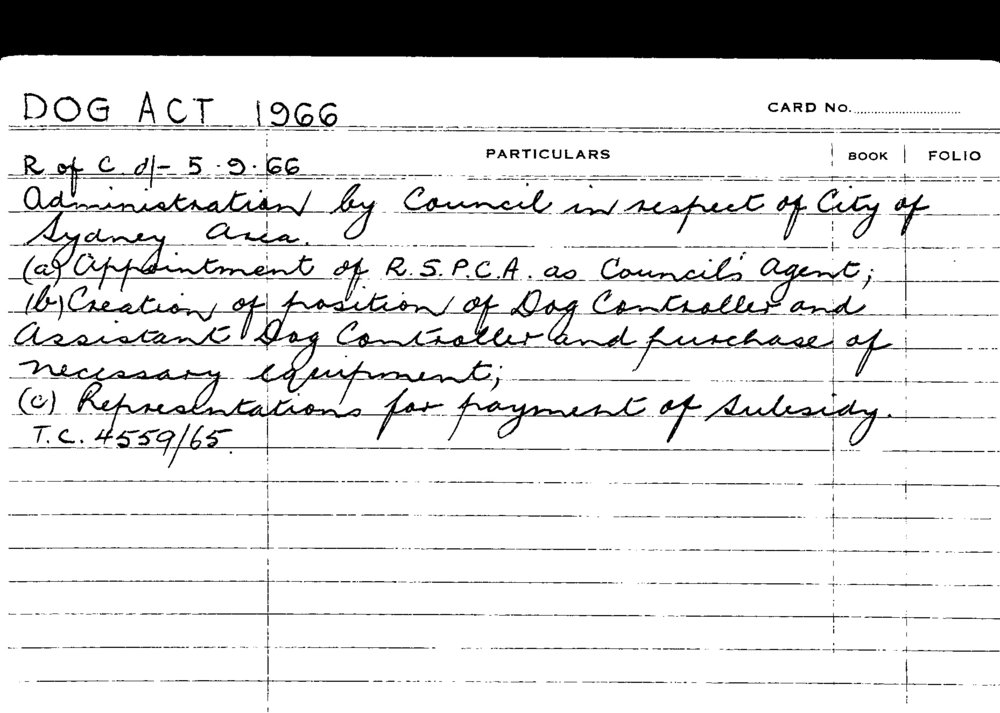 DOG ACT 1966
CARD No.
PARTICULARS BOOK FOLIO
R of C d/- 5.9.66
Administration by Council in respect of City of
Sydney Area.
(a) Appointment of R.S.P.C.A. as Council's Agent;
(b) Creation of position of Dog Controller and
Assistant Dog Controller and purchase of
necessary equipment;
(c) Representations for payment of subsidy.
T.C. 4559/65.